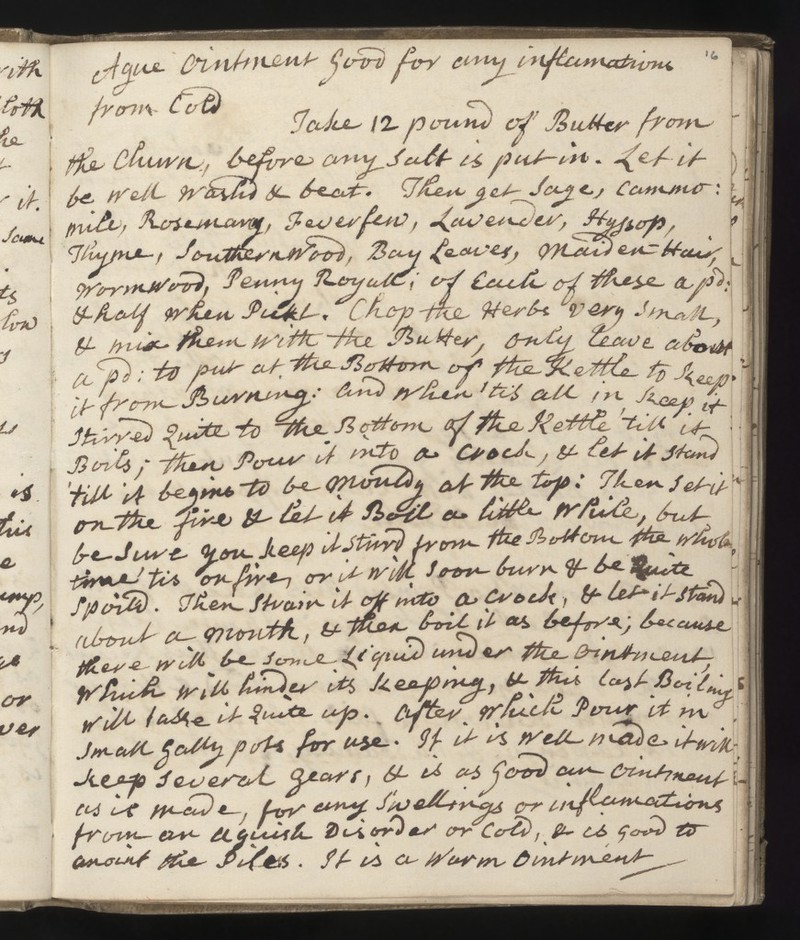 16
Ague Ointment Good for any inflamations
from Cold
Take 12 pound of Butter from
the Churn, before any Salt is put in. Let it
be well Washd & beat. Then get Sage, Cammo:
mile, Rosemary, Feverfew, Lavender, Hyssop,
Thyme, Southernwood, Bay Leaves, Maiden-Hair,
Wormwood, Penny Royall; of Each of these a pd:
& half when Pickt. Chop the Herbs very Small,
& mix them with the Butter, only leave about
a pd: to put at the Bottom of the Kettle to Keep
it from Burning: and when 'tis all in keep it
Stirred Quite to the Bottom of the Kettle 'till it
Boils; then Pour it into a Crock, & let it Stand
'till it begins to be Mouldy at the top: Then Set it
on the fire & let it Boil a little While, but
be Sure you keep it Stird from the Bottom the whole
time 'tis on fire, or it will Soon burn & be Quite
Spoild. Then Strain it off into a Crock, & let it Stand
about a Month, & then boil it as before; because
there will be some Liquid under the Ointment,
Which will hinder its Keeping, & this last Boiling
will take it Quite up. After which Pour it in
Small Gally pots for use. If it is well made it will
Keep Several Years, & is as Good an Ointment
as is made, for any Swellings or inflamations
from an Aguish Disorder or Cold, & is Good to
anoint the Piles. It is a Warm Ointment
with
Cloth
he
it.
Same
ts
is
this
e
nd
or
ver